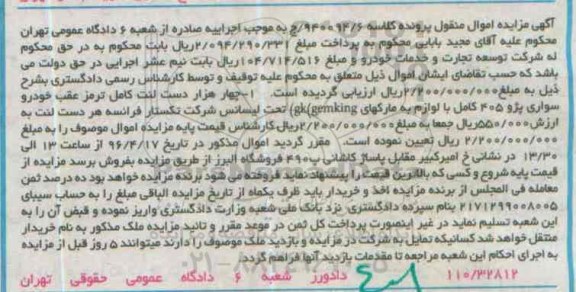 آگهی مزایده اموال منقول پرونده کلاسه ۹۴۰۰۹۲/۶/ج به موجب اجراییه صادره از شعبه ۶ دادگاه عمومی تهران
محکوم علیه آقای مجید بابایی محکوم به پرداخت مبلغ ۲/۰۹۴/۲۹۰/۳۳۱ریال بابت محکوم به در حق محکوم
له شرکت توسعه تجارت و خدمات خودرو و مبلغ ۱۰۴/۷۱۴/۵۱۶ریال بابت نیم عشر اجرایی در حق دولت می
باشد که حسب تقاضای ایشان اموال ذیل متعلق به محکوم علیه توقیف و توسط کارشناس رسمی دادگستری بشرح
ذیل به مبلغ۲/۲۰۰/۰۰۰/۰۰۰ریال ارزیابی گردیده است. ۱-چهار هزار دست لنت کامل ترمز عقب خودرو
سواری پژو ۴۰۵ کامل با لوازم به مارکهای gk(gemking) تحت لیسانس شرکت تکستار فرانسه هر دست لنت به
ارزش۵۵۰/۰۰۰ریال جمعا به مبلغ۲/۲۰۰/۰۰۰/۰۰۰ریال.کارشناس قیمت پایه مزایده اموال موصوف را به مبلغ
۲/۲۰۰/۰۰۰/۰۰۰ ریال تعیین نموده است. مقرر گردید اموال مذکور در تاریخ ۹۶/۴/۱۷ از ساعت ۱۳ الی
۱۳/۳۰ در نشانی خ امیرکبیر مقابل پاساژ کاشانی پ۴۹۰ فروشگاه البرز از طریق مزایده بفروش برسد مزایده از
قیمت پایه شروع و کسی که بالاترین قیمت را پیشنهاد نماید فروخته می شود برنده مزایده خواهد بود ده درصد ثمن
معامله فی المجلس از برنده مزایده اخذ و خریدار باید ظرف یکماه از تاریخ مزایده الباقی مبلغ را به حساب سیبای
۲۱۷۱۲۹۹۰۰۸۰۰۵ بنام سپرده دادگستری نزد بانک ملی شعبه وزارت دادگستری واریز نموده و قبض آن را به
این شعبه تسلیم نماید در غیر اینصورت پرداخت کل ثمن در موعد مقرر و تائید مزایده ملک مذکور به نام خریدار
منتقل خواهد شد کسانیکه تمایل به شرکت در مزایده و بازدید ملک موصوف را دارند میتوانند ۵ روز قبل از مزایده
به اجرای احکام این شعبه مراجعه تا مقدمات بازدید آنها فراهم گردد.
۱۱۰/۳۲۸۱۲ دادورز شعبه ۶ دادگاه عمومی حقوقی تهران